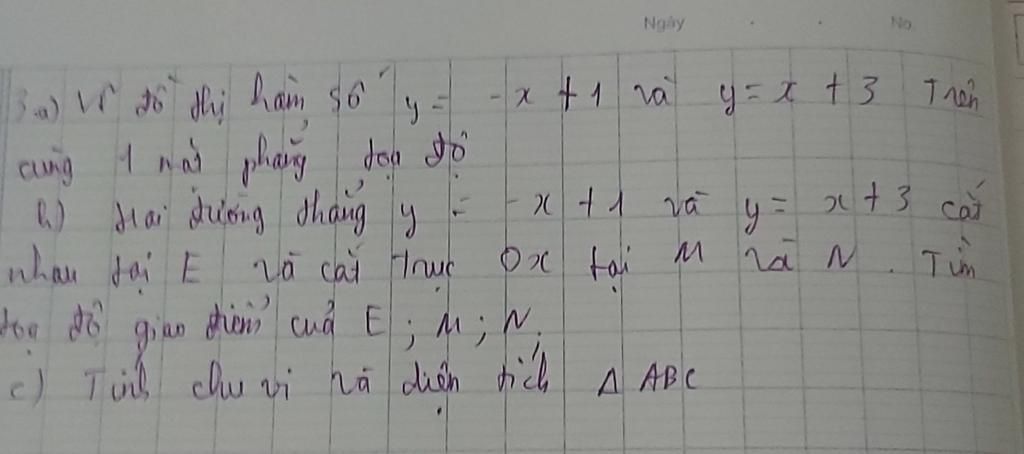 Ngày No.
3.a) Vẽ đồ thị hàm số y = -x + 1 và y = x + 3 Trên
cùng 1 mặt phẳng tọa độ
b) Hai đường thẳng y = -x + 1 và y = x + 3 cắt
nhau tại E và cắt trục Ox tại M và N. Tìm
tọa độ giao điểm của E; M; N.
c) Tính chu vi và diện tích Δ ABC